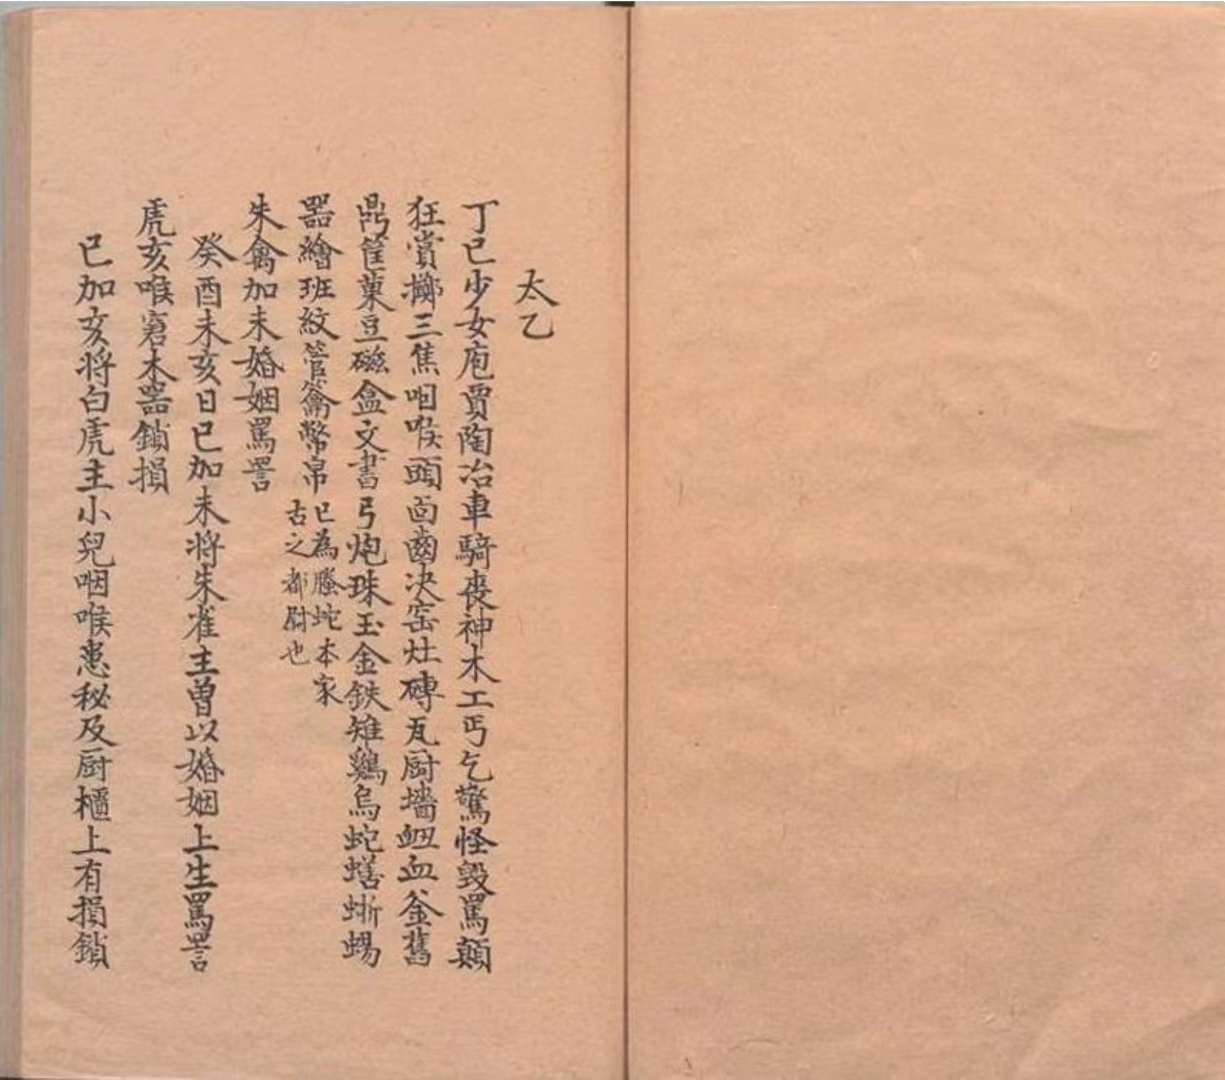 太乙
丁巳少女庖賈陶冶車騎喪神木工丐乞驚怪毀罵顛
狂賞擲三焦咽喉頭面齒決窑灶磚瓦厨墻衂血釜舊
鼎筐菓豆磁盒文書弓炮珠玉金鉄雉鷄烏蛇蟮蜥蜴
器繪班紋管籥幣帛
巳為螣蛇本家
古之都尉也
朱禽加未婚姻罵詈
癸酉未亥日巳加未将朱雀主曾以婚姻上生罵詈
虎亥喉窘木器鎖損
巳加亥将白虎主小兒咽喉患秘及厨櫃上有損鎖